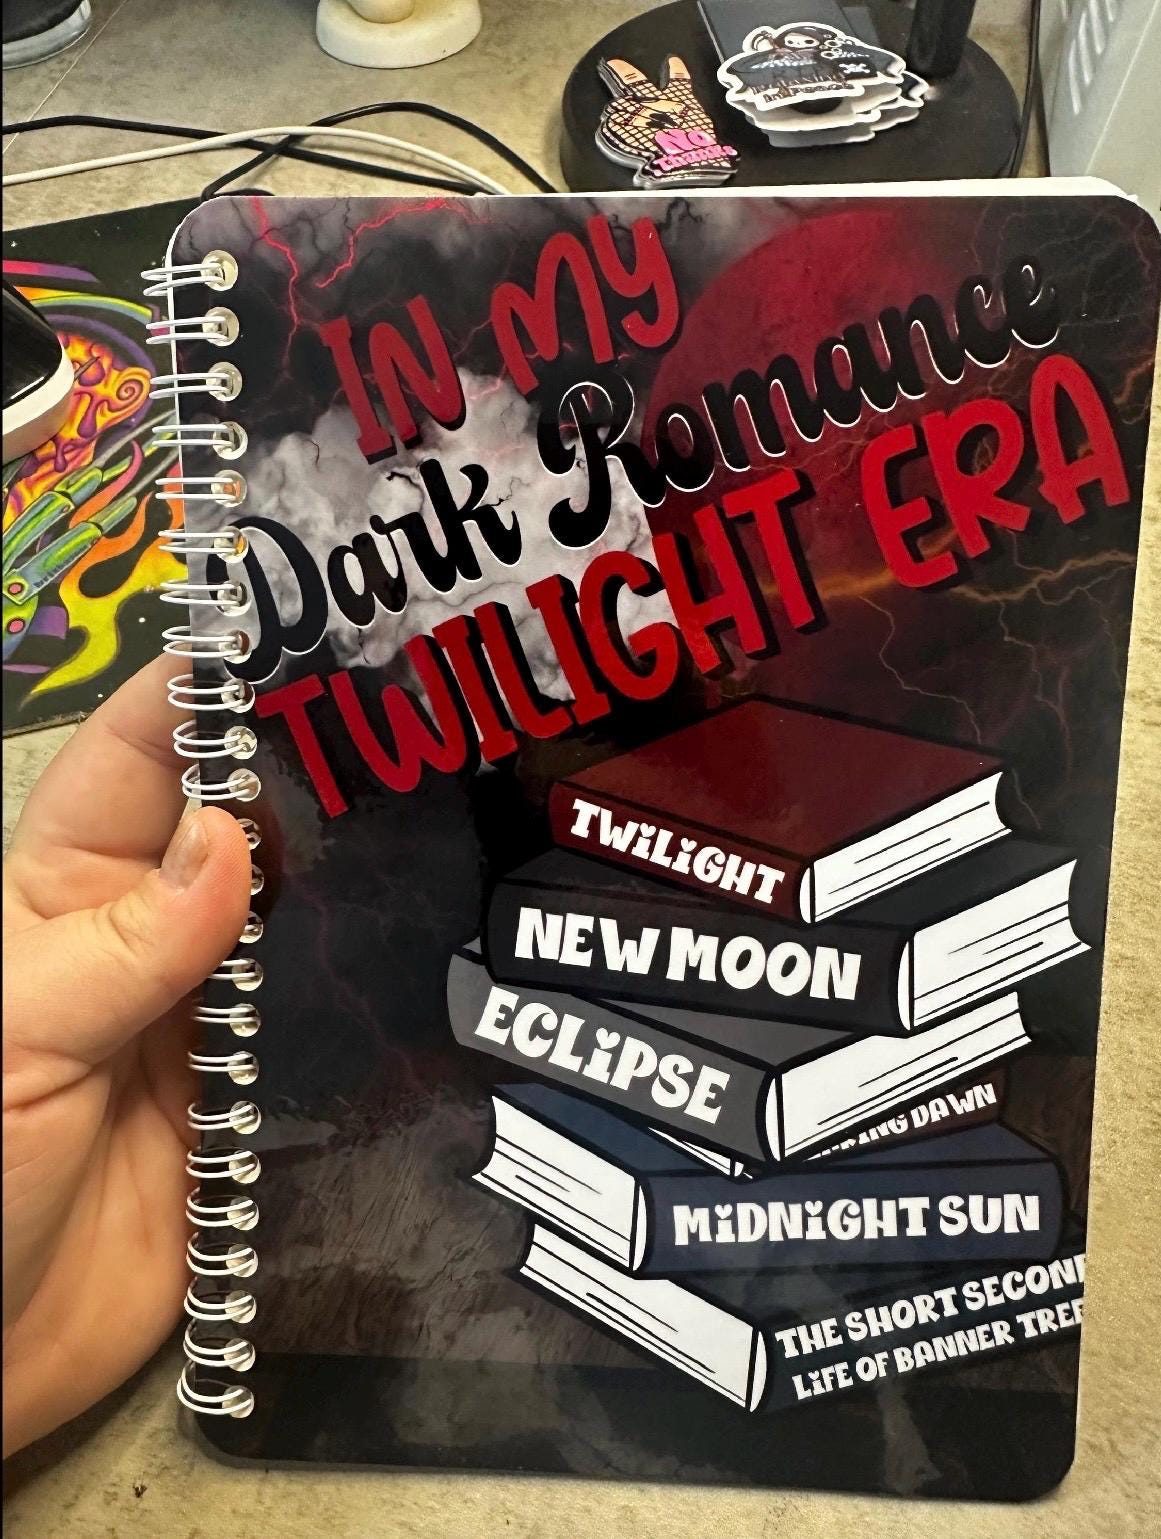 No
Thanks
IN MY
Dark Romance
TWILIGHT ERA
TWiLiGHT
NEW MOON
ECLiPSE
KING DAWN
MiDNiGHT SUN
THE SHORT SECON
LiFE OF BANNER TREE